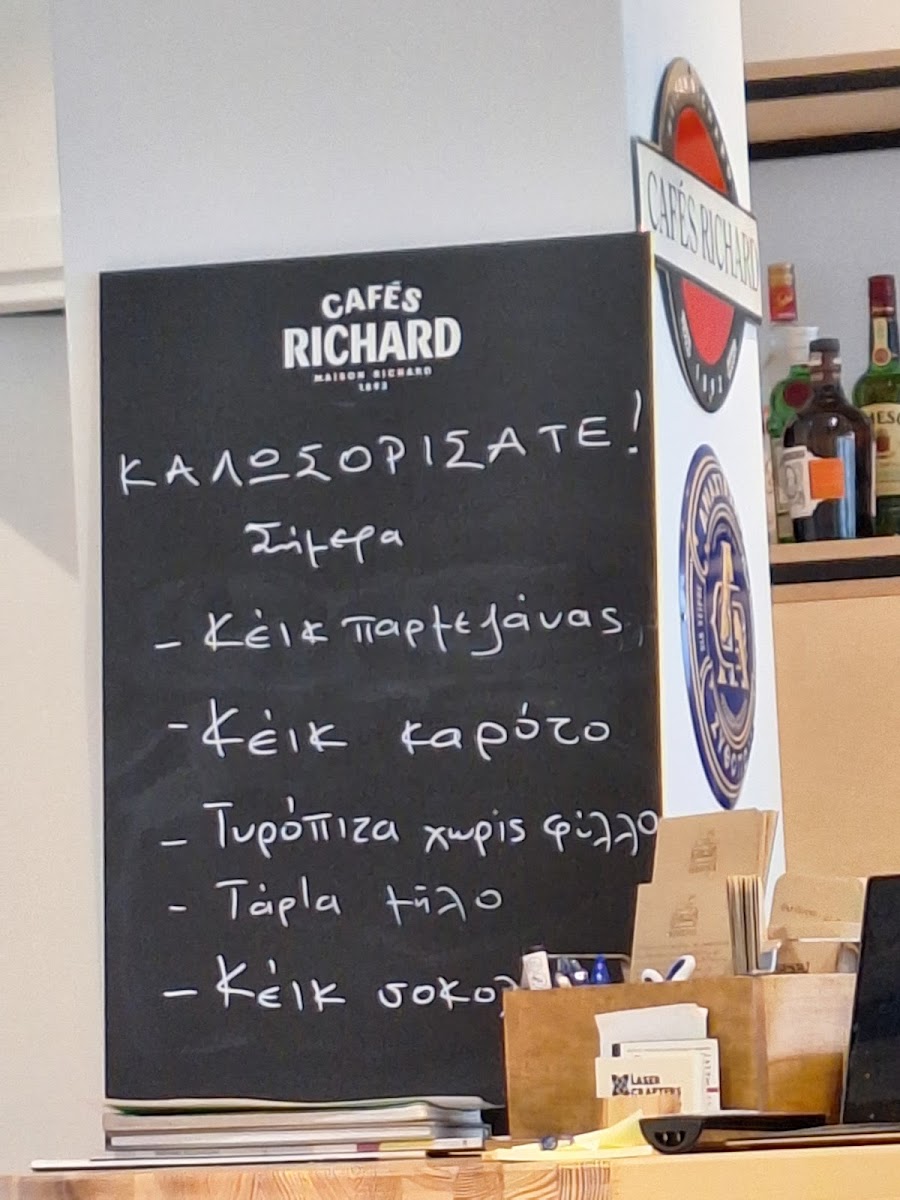 CAFÉS
RICHARD
MAISON RICHARD
1892
ΚΑΛΩΣΟΡΙΣΑΤΕ!
Σήμερα
- Κέικ παρμεζάνας
- Κέικ καρότο
- Τυρόπιτα χωρίς φύλλο
- Τάρτα μήλο
- Κέικ σοκολ
CAFÉS RICHARD
1892
LASER
CRAFTERS